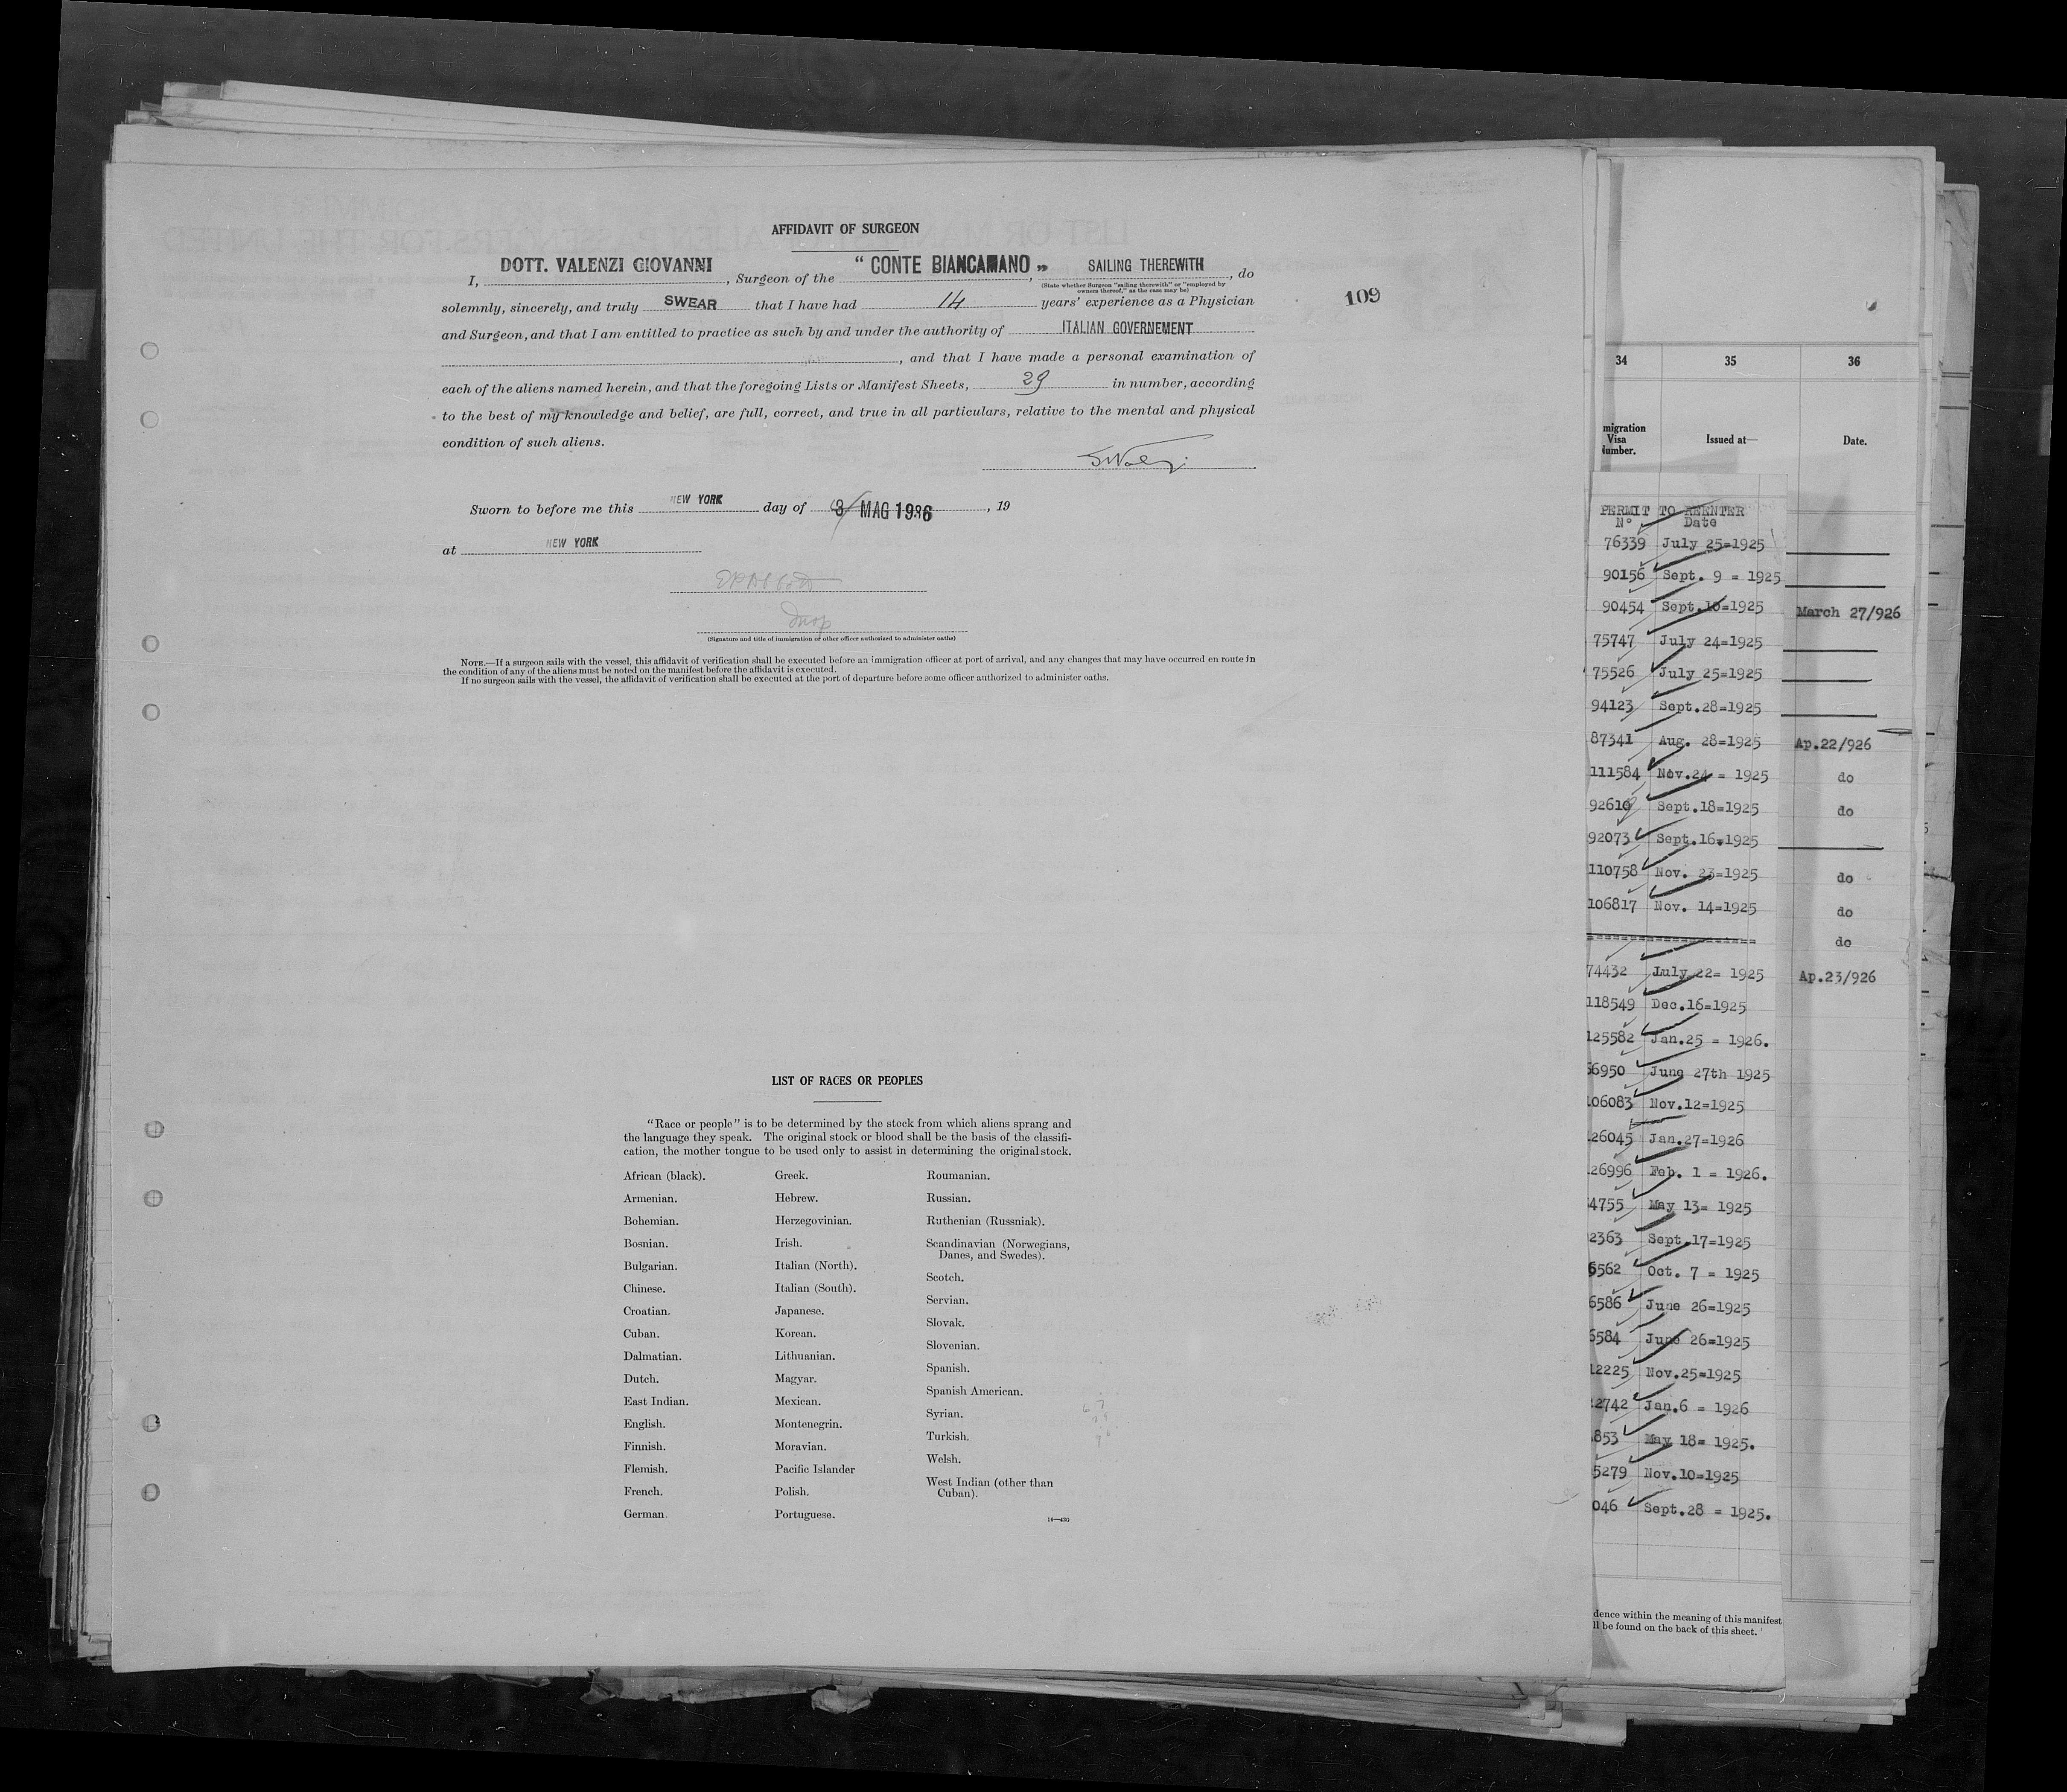 AFFIDAVIT OF SURGEON
I, DOTT. VALENZI GIOVANNI, Surgeon of the " CONTE BIANCAMANO ", SAILING THEREWITH, do
(State whether Surgeon "sailing therewith" or "employed by owners thereof," as the case may be)
solemnly, sincerely, and truly SWEAR that I have had 14 years' experience as a Physician
and Surgeon, and that I am entitled to practice as such by and under the authority of ITALIAN GOVERNEMENT
, and that I have made a personal examination of
each of the aliens named herein, and that the foregoing Lists or Manifest Sheets, 29 in number, according
to the best of my knowledge and belief, are full, correct, and true in all particulars, relative to the mental and physical
condition of such aliens.
109
Sworn to before me this NEW YORK day of 3 MAG 1926, 19
at NEW YORK
Insp
(Signature and title of immigration or other officer authorized to administer oaths)
NOTE.—If a surgeon sails with the vessel, this affidavit of verification shall be executed before an immigration officer at port of arrival, and any changes that may have occurred en route in
the condition of any of the aliens must be noted on the manifest before the affidavit is executed.
If no surgeon sails with the vessel, the affidavit of verification shall be executed at the port of departure before some officer authorized to administer oaths.
LIST OF RACES OR PEOPLES
"Race or people" is to be determined by the stock from which aliens sprang and
the language they speak. The original stock or blood shall be the basis of the classifi-
cation, the mother tongue to be used only to assist in determining the original stock.
African (black).
Armenian.
Bohemian.
Bosnian.
Bulgarian.
Chinese.
Croatian.
Cuban.
Dalmatian.
Dutch.
East Indian.
English.
Finnish.
Flemish.
French.
German.
Greek.
Hebrew.
Herzegovinian.
Irish.
Italian (North).
Italian (South).
Japanese.
Korean.
Lithuanian.
Magyar.
Mexican.
Montenegrin.
Moravian.
Pacific Islander
Polish.
Portuguese.
Roumanian.
Russian.
Ruthenian (Russniak).
Scandinavian (Norwegians,
Danes, and Swedes).
Scotch.
Servian.
Slovak.
Slovenian.
Spanish.
Spanish American.
Syrian.
Turkish.
Welsh.
West Indian (other than
Cuban).
34 35 36
migration
Visa
Number.
Issued at—
Date.
PERMIT TO REENTER
N° Date
76339 July 25=1925
90156 Sept. 9 = 1925
90454 Sept.10=1925 March 27/926
75747 July 24=1925
75526 July 25=1925
94123 Sept.28=1925
87341 Aug. 28=1925 Ap.22/926
111584 Nov.24 = 1925 do
92610 Sept.18=1925 do
92073 Sept.16=1925
110758 Nov. 23=1925 do
106817 Nov. 14=1925 do
do
74432 July 22= 1925 Ap.23/926
118549 Dec.16=1925
125582 Jan.25 = 1926.
66950 June 27th 1925
106083 Nov.12=1925
26045 Jan.27=1926
26996 Feb. 1 = 1926.
4755 May 13= 1925
2363 Sept.17=1925
6562 Oct. 7 = 1925
6586 June 26=1925
6584 June 26=1925
12225 Nov.25=1925
2742 Jan.6 = 1926
853 May 18= 1925.
5279 Nov.10=1925
046 Sept.28 = 1925.
dence within the meaning of this manifest
ll be found on the back of this sheet.